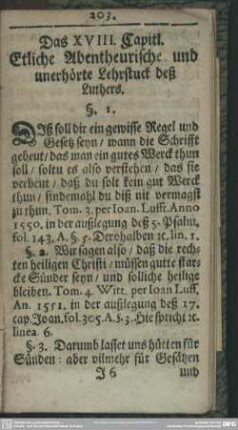 203.
Das XVIII. Capitl.
Etliche Abentheurische und
unerhörte Lehrstuck deß
Luthers.
§. 1.
DIß soll dir ein gewisse Regel und
Gesetz seyn / wann die Schrifft
gebeut / das man ein gutes Werck thun
soll / soltu es also verstehen / das sie
verbeut / daß du solt kein gut Werck
thun / sindemahl du diß nit vermagst
zu thun. Tom. 3. per Ioan. Lufft. Anno
1550. in der außlegung deß 5. Psalm.
fol. 143. A. §. 5. Derohalben ꝛc. lin. 1.
§. 2. Wir sagen also / daß die rech-
ten heiligen Christi / müssen gutte star-
cke Sünder seyn / und solliche heilige
bleiben. Tom. 4. Witt. per Ioan Luff.
An. 1551. in der außlegung deß 17.
cap Joan. fol. 305. A. §. 3. Hie spricht ꝛc.
linea 6.
§. 3. Darumb lasset uns hütten für
Sünden: aber vilmehr für Gesätzen
J 6 und